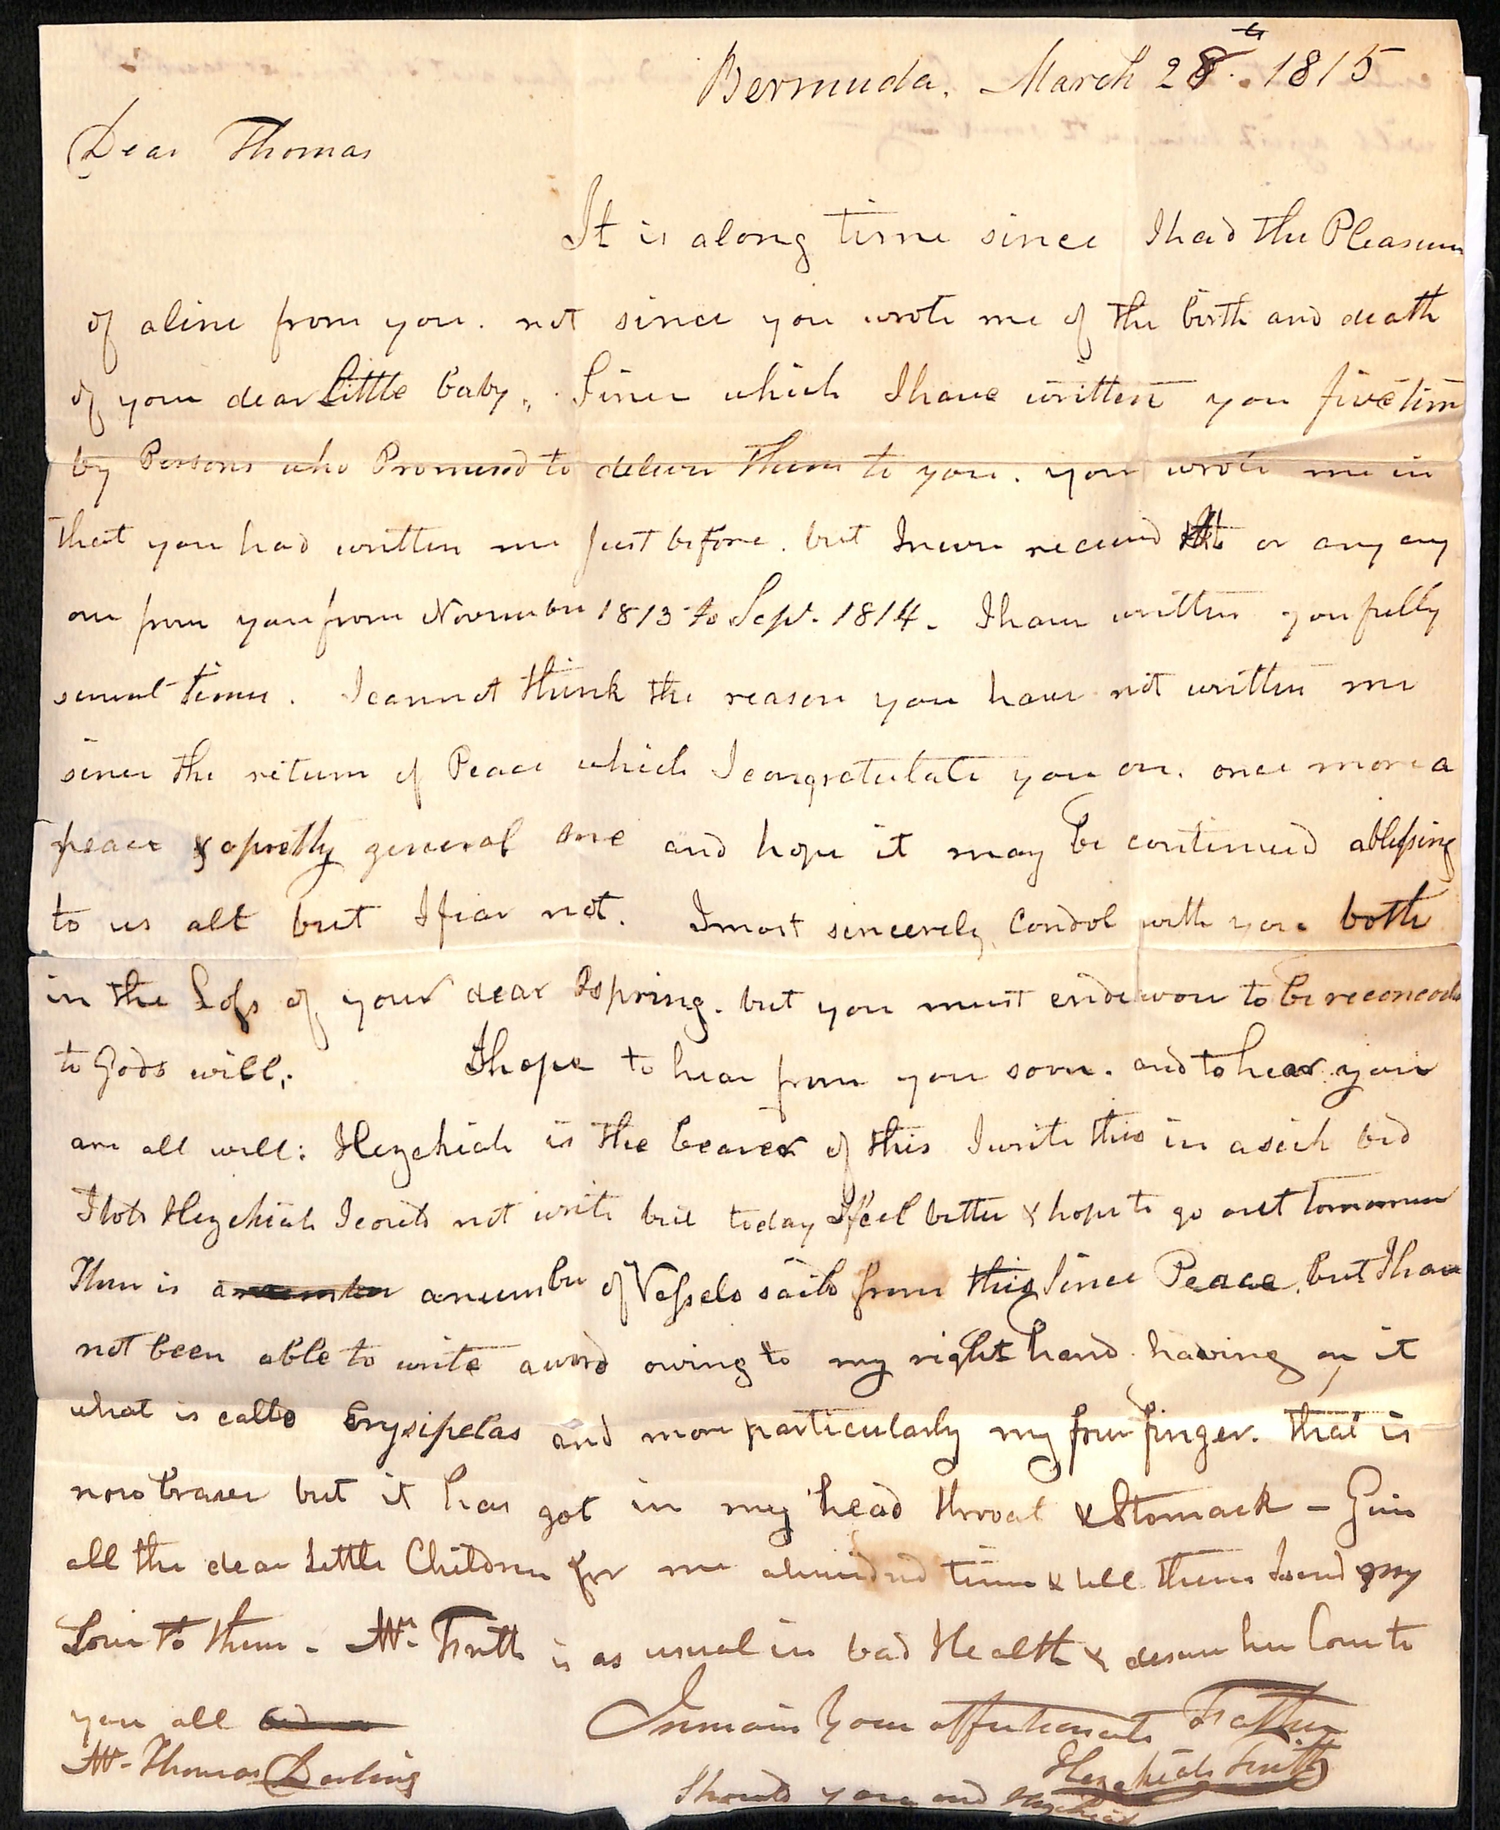 Bermuda. March 28th. 1815
Dear Thomas
It is along time since I had the Pleasure
of aline from you. not since you wrote me of the birth and death
of your dear Little baby. Since which I have written you five tim
by Persons who Promised to deliver them to you. you wrote me in
that you had written me just before. but I never received it or any any
one from you from November 1813 to Sept. 1814. I have written you fully
several times. I cannot think the reason you have not written me
since the return of Peace which I congratulate you on. once more a
peace & a pretty general one and hope it may be continued ablessing
to us all but I fear not. I most sincerely Condol with you both
in the Loss of your dear ospring. but you must endevour to be
to Gods will. I hope to hear from you soon. and to hear you
are all well: Hezekiah is the bearer of this I write this in asick bed
I told Hezekiah I could not write but today I feel better & hope to go out tomorrow
There is anumber of Vessels saild from this Since Peace, but I have
not been able to write aword owing to my right hand having on it
what is calld Erysipelas and more particularly my four finger. that is
now but it has got in my head throat & Stomack - Give
all the dear Little Children for me ahundred times & tell them I send my
Love to them - Mrs. Frith is as usual in bad Health & desires her Love to
you all
I remain Your affectionate Father
Hezekiah Frith
Mr. Thomas Darling
Should you and Hezekiah